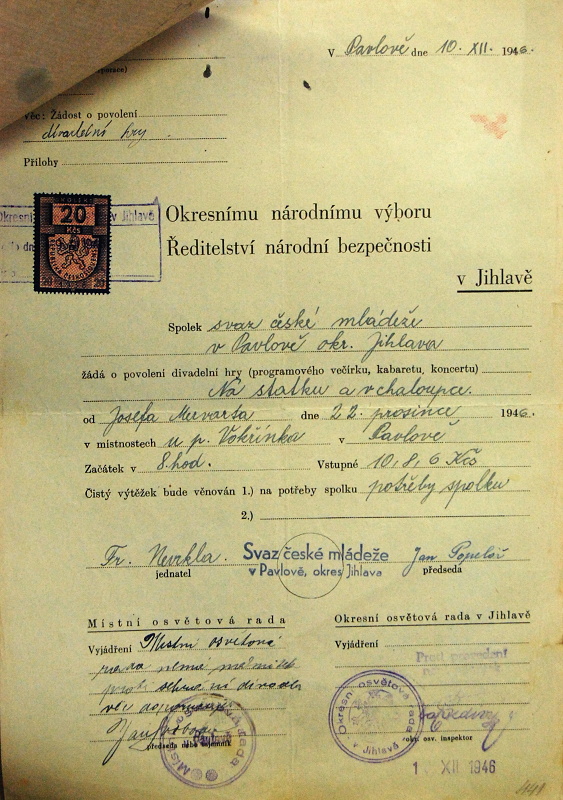 V Pavlově dne 10. XII. 1946.
Věc: Žádost o povolení
divadelní hry.
Přílohy
Okresní v Jihlavě
20
Kčs
Okresnímu národnímu výboru
Ředitelství národní bezpečnosti
v Jihlavě
Spolek svaz české mládeže
v Pavlově okr. Jihlava
žádá o povolení divadelní hry (programového večírku, kabaretu, koncertu)
Na statku a v chaloupce.
od Josefa Mervarta dne 22. prosince 1946.
v místnostech u p. Vokřínka v Pavlově
Začátek v 8 hod. Vstupné 10, 8, 6 Kčs
Čistý výtěžek bude věnován 1.) na potřeby spolku potřeby spolku
2.)
Fr. Nevrkla. Svaz české mládeže Jan Popelář
v Pavlově, okres Jihlava
jednatel předseda
Místní osvětová rada
Vyjádření Místní osvětová
rada nemá námitek
proti sehrání divadla
předseda nebo tajemník
Pavlově
Okresní osvětová rada v Jihlavě
Vyjádření
Okresní osvětová rada
v Jihlavě
osv. inspektor
1 XII 1946
441